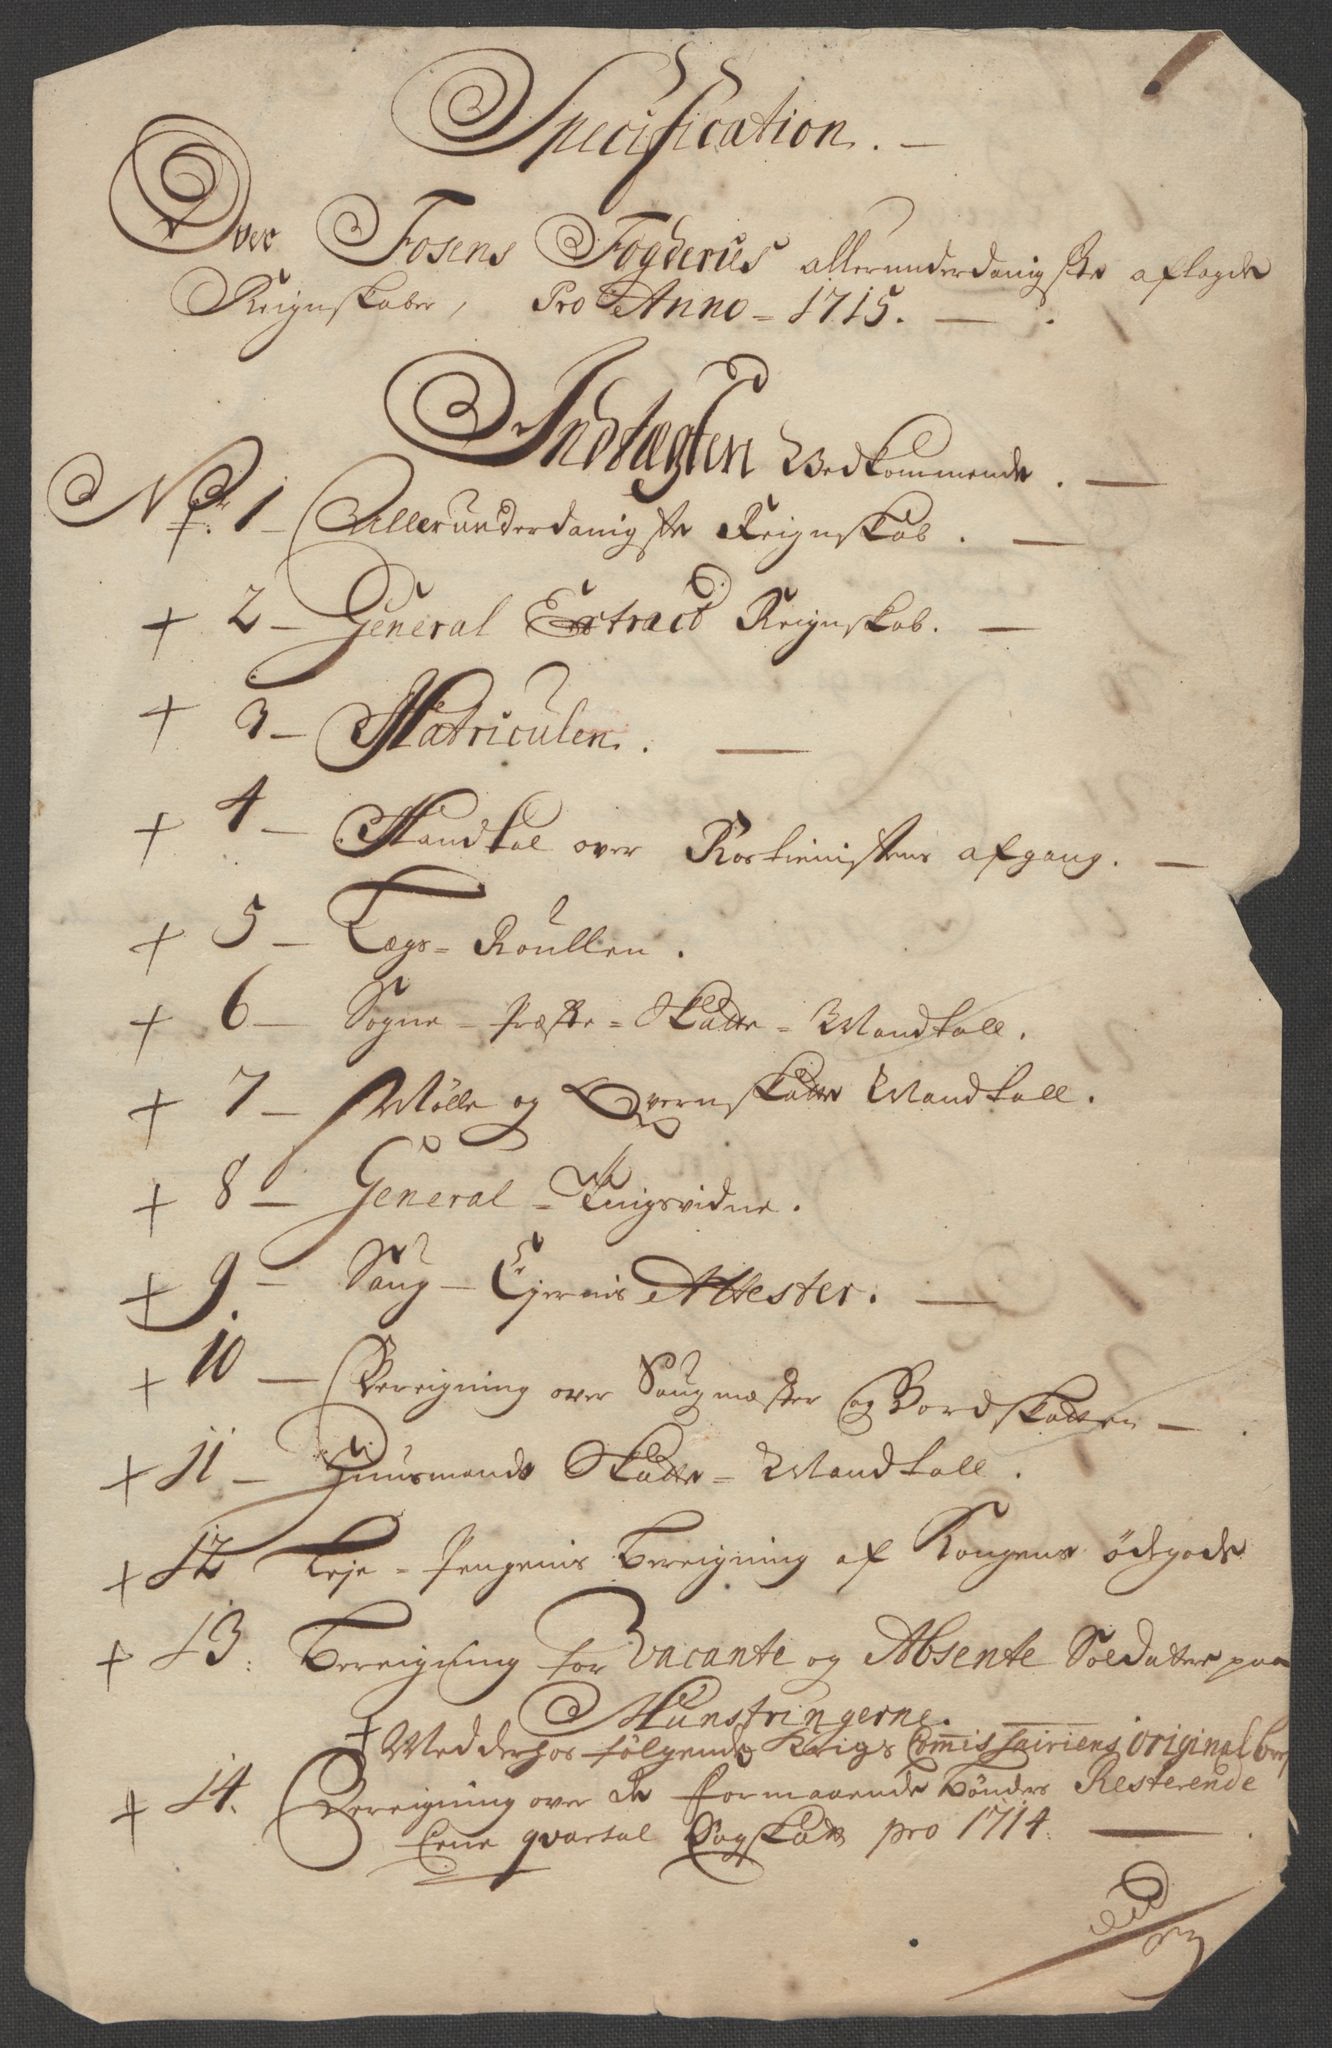 Specification. —
Over Fosens Fogderies allerunderdanigste aflagde
Reignskaber, Pro Anno = 1715. — .
Indtægten Vedkommende. —
No. 1 — Allerunderdanigste Reignskab. —
+ 2 — General Extract Reignskab. —
+ 3 — Matriculen. —
+ 4 — Mandtal over Rostienistens afgang. —
+ 5 — Lægs = Roullen.
+ 6 — Sogne = Præste = Skatte = Mandtall.
+ 7 — Mølle og Qvernskatte Mandtall.
+ 8 — General = Tingsvidne.
+ 9. — Saug — Eyernis Attester. —
+ 10 — Bereigning over Saugmæster og Bordskatten —
+ 11 — Huusmands Skatte = Mandtall.
+ 12 Leje = Pengenis Bereigning af Kongens ødegods
+ 13. Bereigning for Vacante og Absente Soldatter paa
Munstringerne.
+ Med derhos følgende Krigs Commissairiens original
+ 14. Bereigning over de formaaende Bønders Resterende
Eene qvartal Sogskatt pro 1714. —